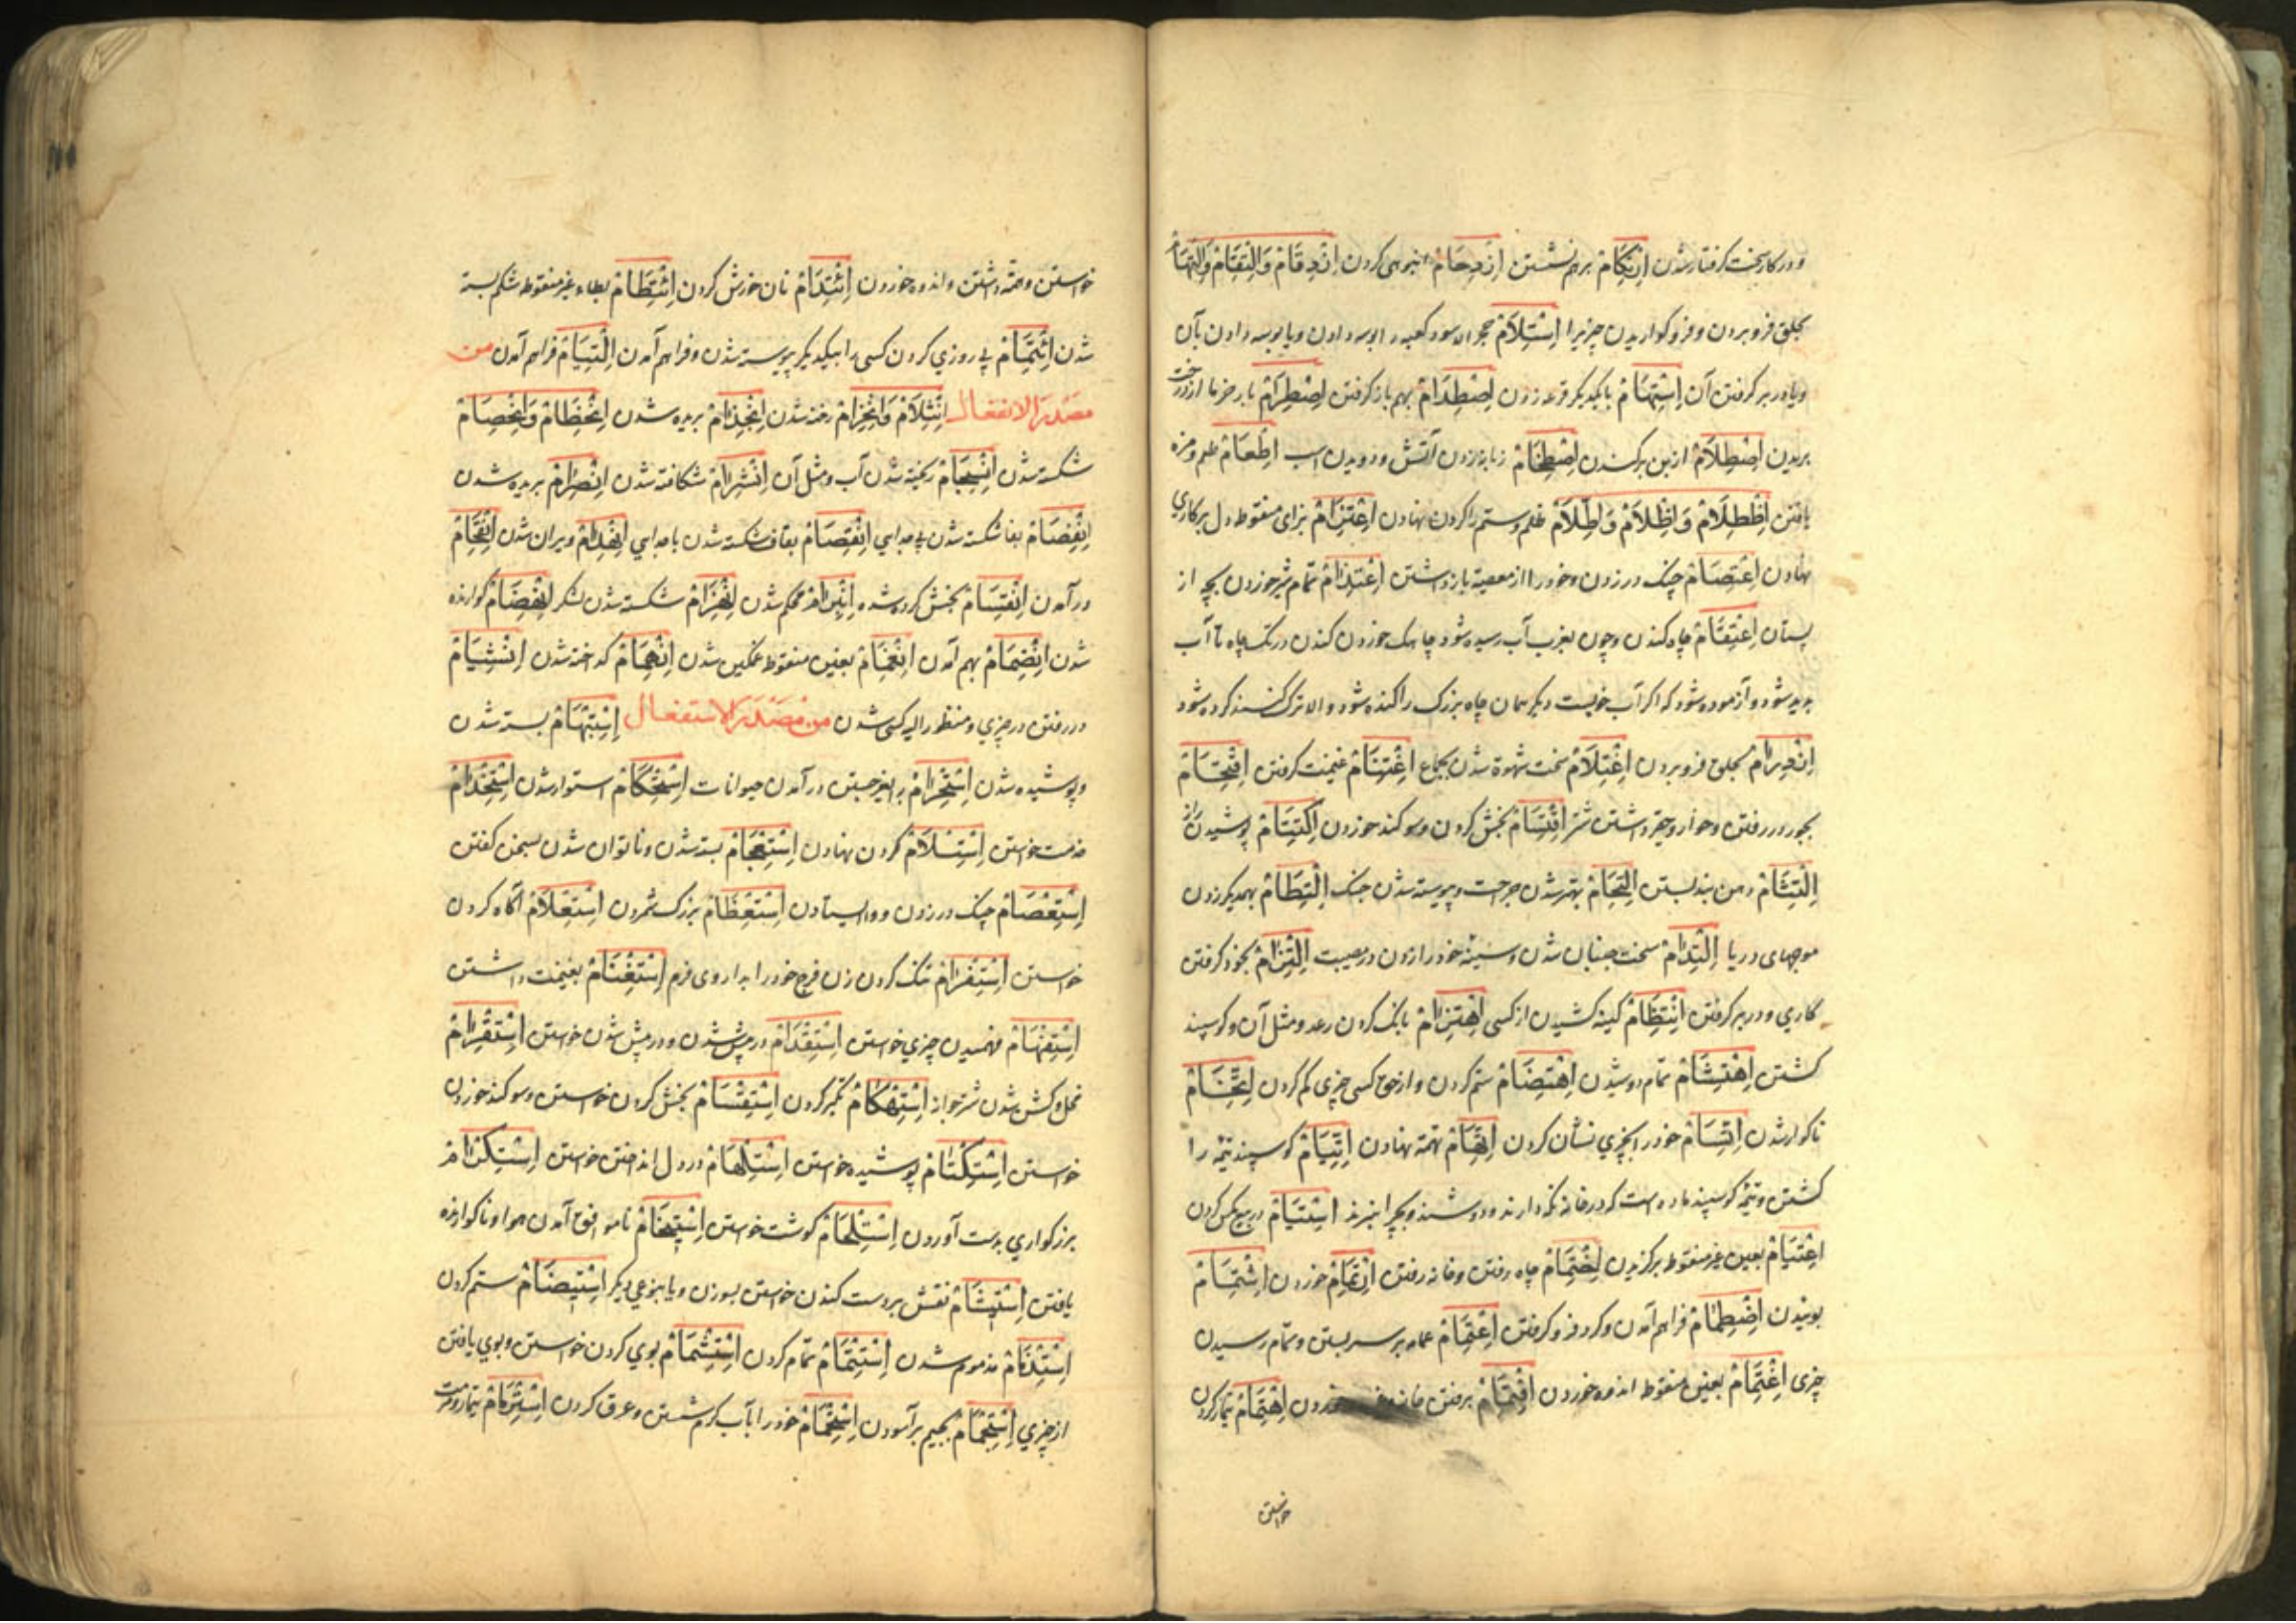 و در کار سخت گرفتار شدن اِرْتِكَامْ برهم نشستن اِزْدِحَامْ انبوهی کردن اِزْدِقَامْ وَالْتِقَامْ وَالْتِهَامْ
بحلق فرو بردن و فرو کواریدن چیزیرا اِسْتِلَامْ حجر الاسود کعبه را بوسه دادن و یا بوسه دادن بآن
و یا در بر کرفتن آن اِسْتِهَامْ با یکدیکر قرعه زدن اِصْطِدَامْ بهم باز کرفتن اِصْطِرَامْ بار خرما از درخت
بریدن اِصْطِلَامْ از بن برکندن اِضْطِرَامْ زبانه زدن آتش و دویدن اسب اِطِّعَامْ طعم و مزه
یافتن اِظْطِلَامْ وَاِظِّلَامْ وَاِطِّلَامْ ظلم و ستم را کردن نهادن اِعْتِزَامْ بزای منقوط دل بر کاری
نهادن اِعْتِصَامْ چنک در زدن و خود را از معصیة باز داشتن اِعْتِذَامْ تمام شیر خوردن بچه از
پستان اِعْتِقَامْ چاه کندن و چون بقرب آب رسیده شود چاهک خورد کندن در تک چاه تا آب
پدید شود و آزموده شود که اکر آب خوبست دیکر همان چاه بزرک را کنده شود و الا ترک کند کرده شود
بحلق فرو بردن اِغْتِلَامْ سخت شهوة شدن بجماع اِغْتِنَامْ غنیمت کرفتن اِقْتِحَامْ
بجور در رفتن و خوار و حقیر داشتن اِقْتِسَامْ بخش کردن و سوکند خوردن اِكْتِتَامْ پوشیدن راز
اِلْتِثَامْ دهن بند بستن اِلْتِحَامْ بهتر شدن جراحت و پیوسته شدن جنک اِلْتِطَامْ بهمدیکر زدن
موجهای دریا اِلْتِدَامْ سخت جنبان شدن و سینه خود را زدن در مصیبت اِلْتِزَامْ بخود کرفتن
کاری و در بر کرفتن اِنْتِقَامْ کینه کشیدن از کسی اِهْتِزَامْ بانک کردن رعد و مثل آن و کوسپند
کشتن اِهْتِشَامْ تمام دوشیدن اِهْتِضَامْ ستم کردن و از حق کسی چیزی کم کردن اِتِّخَامْ
ناکوار شدن اِتِّسَامْ خود را بچیزی نشان کردن اِتِّهَامْ تهمة نهادن اِتِّيَامْ کوسپند تیمه را
کشتن و تیمه کوسپند ماده است که در خانه نکه دارند و دوشند و بچرا نبرند اِسْتِيَامْ در بیع مکس کردن
اِعْتِيَامْ بعین غیر منقوط برکزیدن اِخْتِمَامْ چاه رفتن و خانه رفتن اِرْتِمَامْ خوردن اِشْتِمَامْ
بوییدن اِضْطِمَامْ فراهم آمدن و کرد فرو کرفتن اِعْتِمَامْ عمامه بر سر بستن و تمام رسیدن
چیزی اِغْتِمَامْ بغین منقوط اندوه خوردن اِقْتِمَامْ برفتن خانه خوردن اِهْتِمَامْ تیمار کردن
خواستن
خواستن و همة داشتن و اندوه خوردن اِئْتِدَامْ نان خورش کردن اِئْتِطَامْ بطاء غیر منقوط شکم بسته
شدن اِئْتِمَامْ پی روزی کردن کسی را بیکدیکر پیوسته شدن و فراهم آمدن اِلْتِيَامْ فراهم آمدن من
مَصْدَرِ الانفعال اِنْثِلَامْ وَاِنْخِرَامْ رخنه شدن اِنْجِذَامْ بریده شدن اِنْحِطَامْ وَاِنْخِصَامْ
شکسته شدن اِنْسِجَامْ ریخته شدن آب و مثل آن اِنْشِرَامْ شکافته شدن اِنْصِرَامْ بریده شدن
اِنْفِصَامْ بفا شکسته شدن بی جدایی اِنْقِصَامْ بقاف شکسته شدن با جدایی اِنْهِدَامْ ویران شدن اِنْقِحَامْ
در آمدن اِنْقِسَامْ بخش کرده شده اِنْبِرَامْ محکم شدن اِنْهِزَامْ شکسته شدن لشکر اِنْهِضَامْ کوارنده
شدن اِنْضِمَامْ بهم آمدن اِنْغِمَامْ بغین منقوط غمکین شدن اِنْهِمَامْ کداخته شدن اِنْشِيَامْ
در رفتن در چیزی و منظور الیه کسی شدن من مَصْدَرِ الاستفعال اِسْتِبْهَامْ بسته شدن
و پوشیده شدن اِسْتِحْرَامْ در آمدن حیوانات اِسْتِحْكَامْ استوار شدن اِسْتِخْدَامْ
خدمت خواستن اِسْتِسْلَامْ کردن نهادن اِسْتِعْجَامْ بسته شدن و ناتوان شدن بسخن کفتن
اِسْتِعْصَامْ چنک در زدن و وا ایستادن اِسْتِعْظَامْ بزرک شمردن اِسْتِعْلَامْ آکاه کردن
خواستن اِسْتِفْرَامْ تنک کردن زن فرج خود را بداروی فرم اِسْتِغْنَامْ بغنیمت داشتن
اِسْتِفْهَامْ فهمیدن چیزی خواستن اِسْتِقْدَامْ در پیش شدن و در پیش شدن خواستن اِسْتِقْرَامْ
فحل و کشن شدن شتر جوانه اِسْتِهْكَامْ تکبر کردن اِسْتِقْسَامْ بخش کردن خواستن و سوکند خوردن
خواستن اِسْتِكْتَامْ پوشیده خواستن اِسْتِلْهَامْ در دل انداختن خواستن اِسْتِكْرَامْ
بزرکواری بدست آوردن اِسْتِلْحَامْ کوشت خواستن اِسْتِيخَامْ ناموافق آمدن هوا و ناکوارنده
یافتن اِسْتِيشَامْ نقش بر دست کندن خواستن بسوزن و یا بنوعی دیکر اِسْتِيضَامْ ستم کردن
اِسْتِذْمَامْ مذموم شدن اِسْتِتْمَامْ تمام کردن اِسْتِشْمَامْ بوی کردن خواستن و بوی یافتن
از چیزی اِسْتِجْمَامْ بجیم برآسودن اِسْتِحْمَامْ خود را بآب کرم شستن و عرق کردن اِسْتِرْمَامْ بتیمار و مرمت